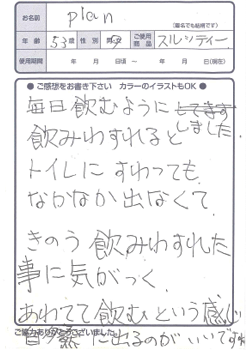 お名前 plan
(匿名でも結構です)
年齢 53歳 性別 男・女 ご使用商品 スルシティー
使用期間 年 月 日頃 ～ 年 月 日(現在)
●ご感想をお書き下さい カラーのイラストもOK●
毎日飲むように
しました。
飲みわすれると
トイレにすわっても
なかなか出なくて
きのう飲みわすれた
事に気がつく。
あわてて飲むという感じ
自然に出るのがいいです。
ご協力ありがとうございました。